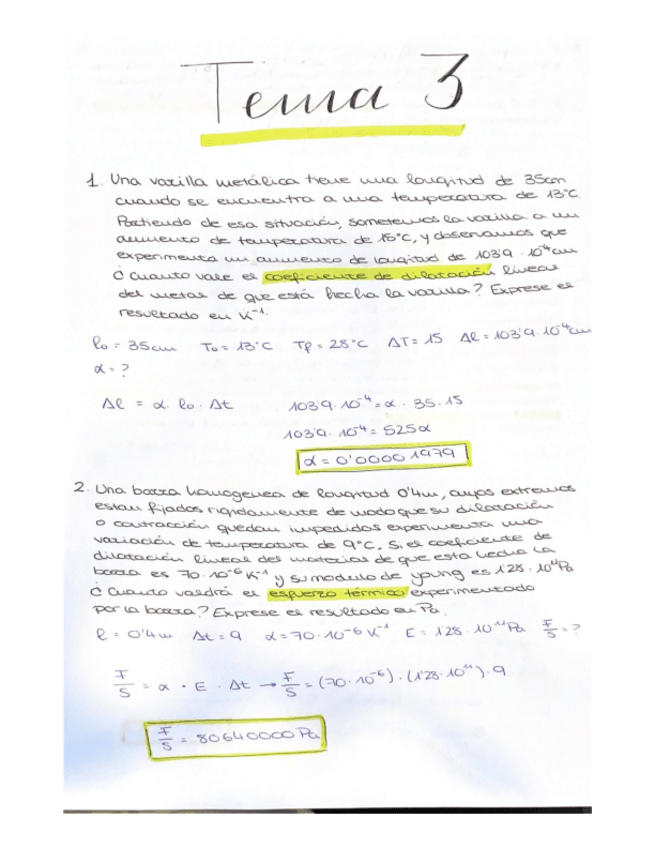 Tema 3
1. Una varilla metálica tiene una longitud de 35cm
cuando se encuentra a una temperatura de 13°C.
Partiendo de esa situación, sometemos la varilla a un
aumento de temperatura de 15°C, y observamos que
experimenta un aumento de longitud de 103'9 · 10⁻⁴cm
¿ Cuanto vale el coeficiente de dilatación lineal
del metal de que está hecha la varilla? Exprese el
resultado en K⁻¹.
l₀ = 35cm T₀ = 13°C Tf = 28°C ΔT = 15 Δl = 103'9·10⁻⁴cm
α = ?
Δl = α · l₀ · Δt 103'9·10⁻⁴ = α · 35·15
103'9·10⁻⁴ = 525α
α = 0'00001979
2. Una barra homogenea de longitud 0'4m, cuyos extremos
estan fijados rigidamente de modo que su dilatación
o contracción quedan impedidos experimenta una
variación de temperatura de 9°C. Si el coeficiente de
dilatación lineal del material de que esta hecha la
barra es 70·10⁻⁶K⁻¹ y su modulo de young es 1'28·10¹¹Pa
¿ Cuanto valdrá el esfuerzo térmico experimentado
por la barra? Exprese el resultado en Pa.
l = 0'4m Δt = 9 α = 70·10⁻⁶ K⁻¹ E = 1'28·10¹¹Pa F/S = ?
F/S = α · E · Δt → F/S = (70·10⁻⁶)·(1'28·10¹¹)·9
F/S = 80640000 Pa